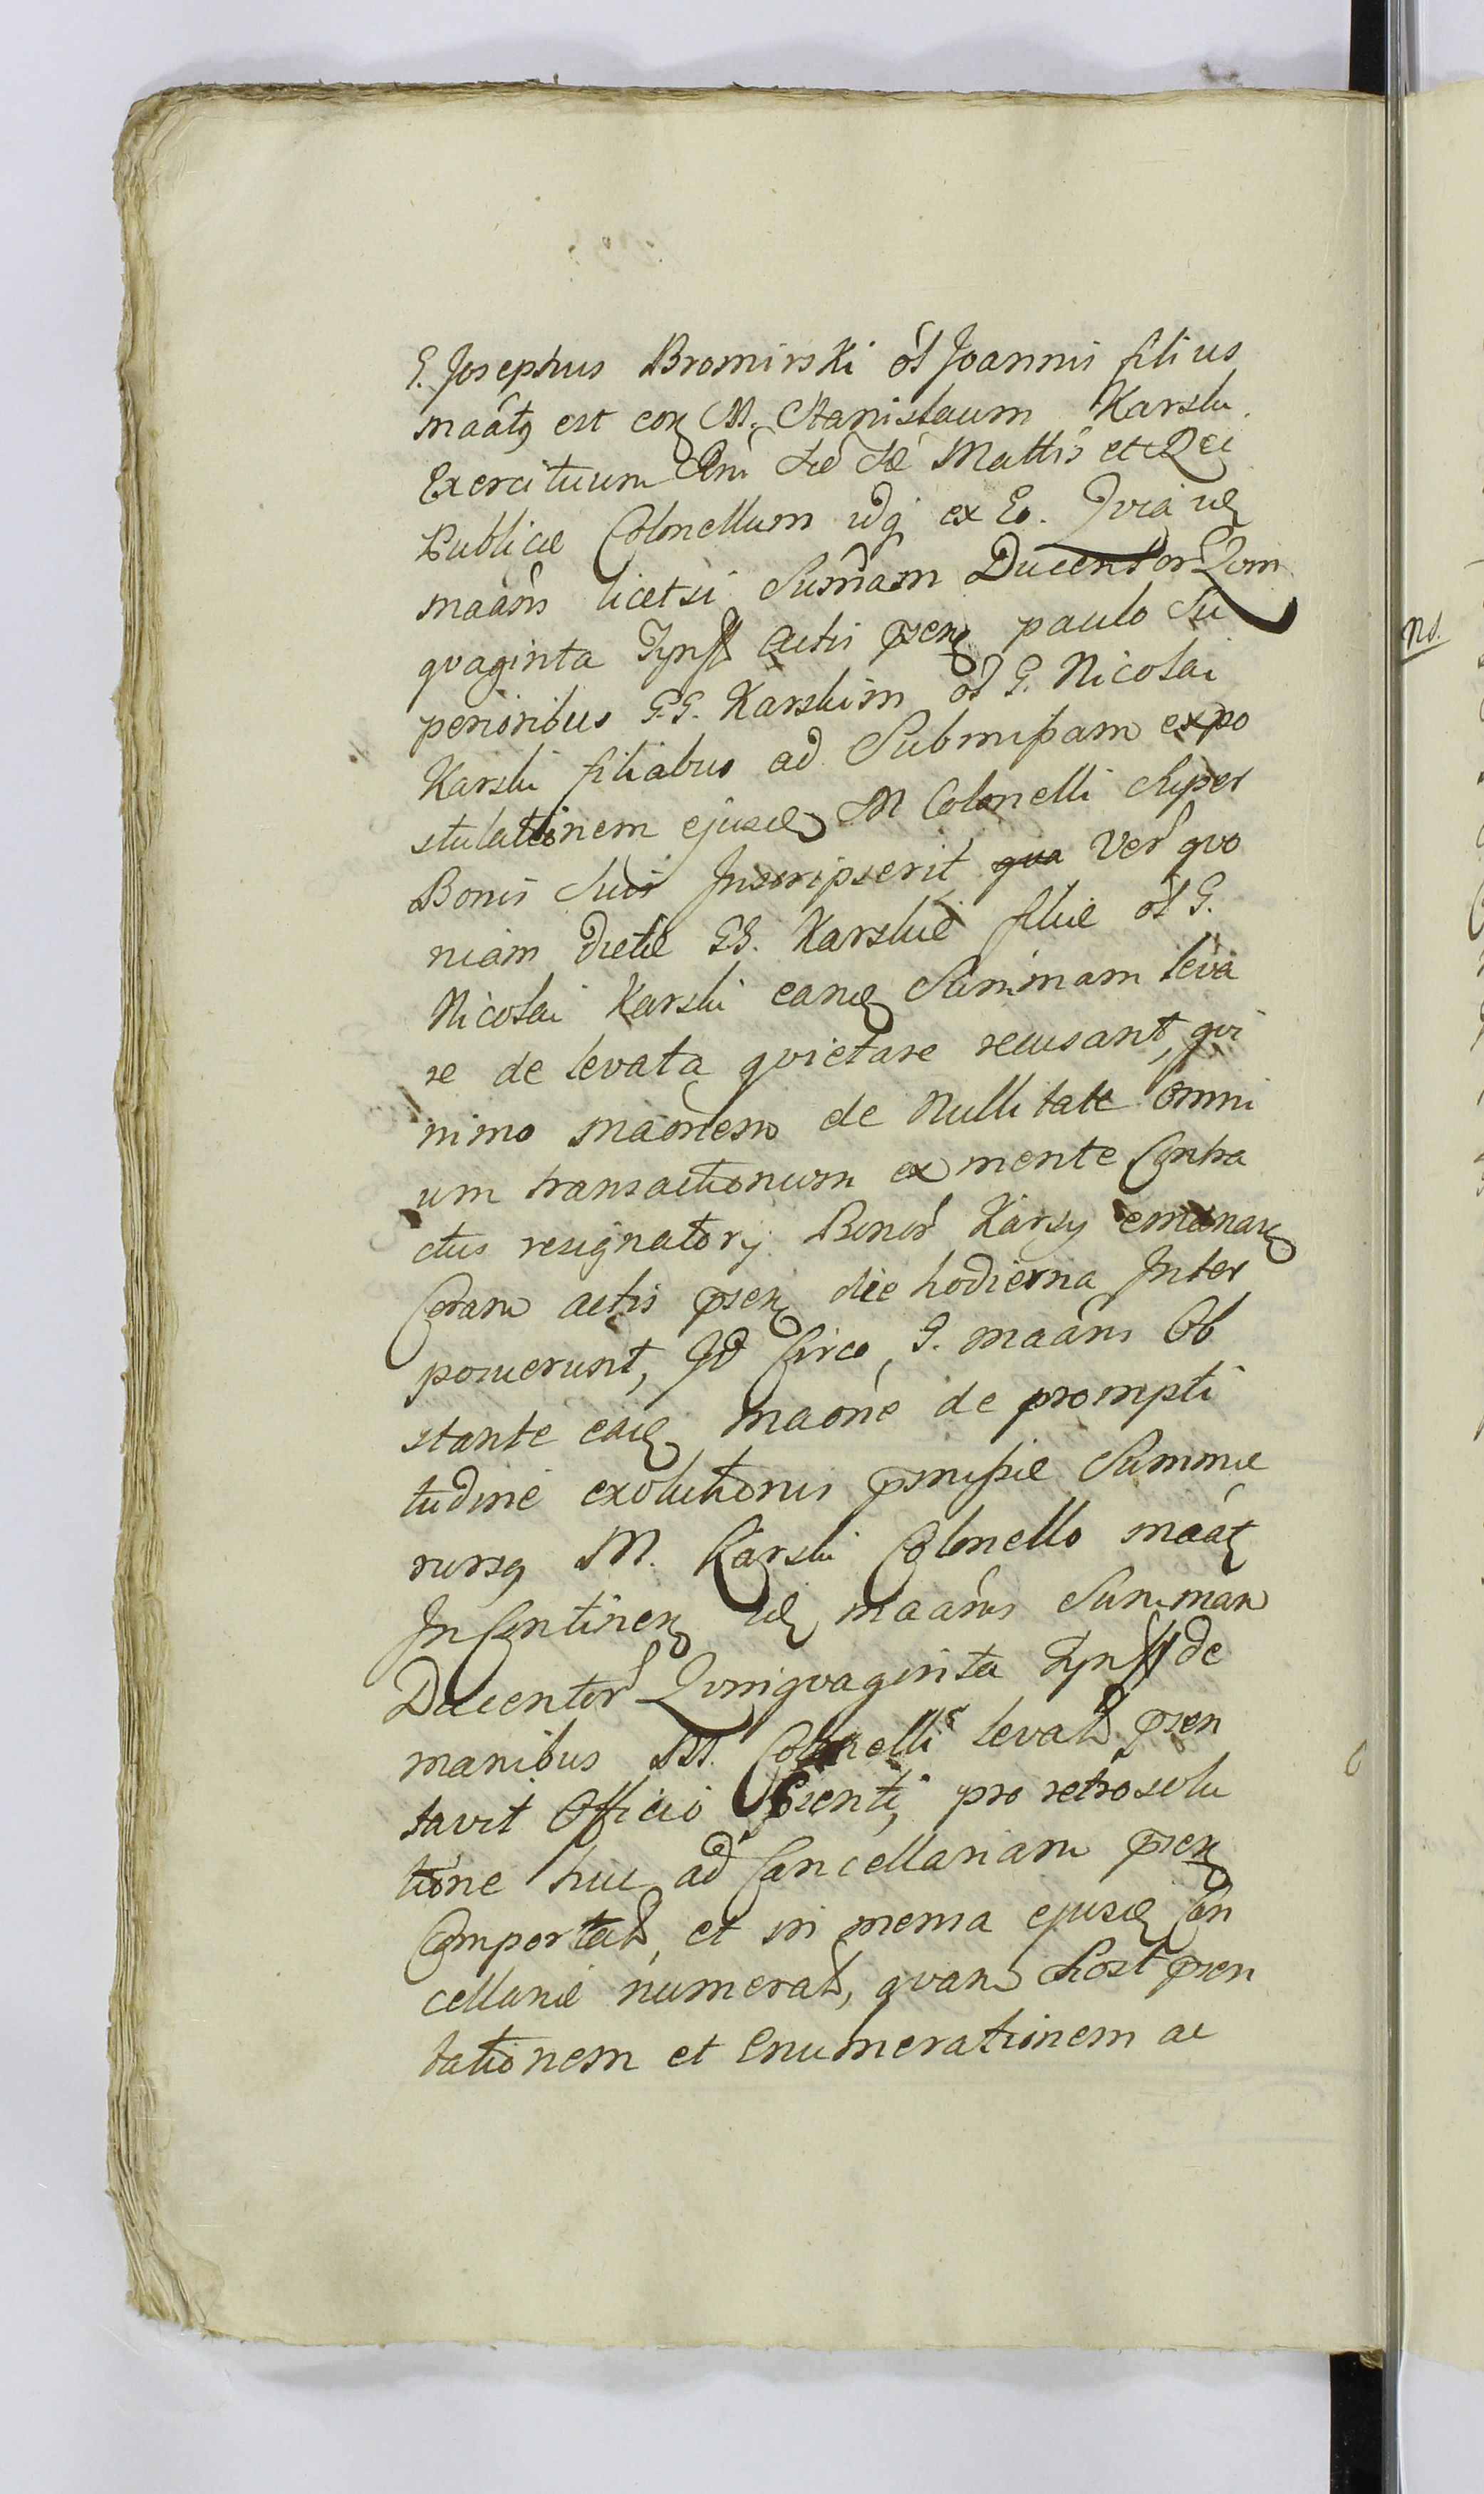 G. Josephus Bromirski ol Joannis filius
maátq est con M. Stanislaum Karski
Exercituum Plni Sae Sae Mattis et Rei
Publicae Colonellum idq ex Eo. Qvia idem
maáns licet si Sumam Ducentor Qvin
qvaginta Tynff Actis psen paulo Su
perioribus G.G. Karskim ol G. Nicolai
Karski filiabus ad Submissam expo
stulationem ejusd M Colonelli Super
Bonis Suis Inscripserit Ver qvo
niam dictae GG. Karskie filiae ol G.
Nicolai Karski eand Summam leva
re de levata qvietare recusant, qvi
nimo maónem de Nullitate omni
um transactionum ex mente Contra
ctus resignatorij Bonor Karsy emanat
Coram actis psen die hodierna Inter
posuerunt, Id Circo G. maáns Ob
stante ead maóne de prompti
tudine exolutionis pmissae Summae
rursq M. Karski Colonello maát
In Continen id maáns Summam
Ducentor Qvinqvaginta Tynff de
manibus M. Colonelli levat psen
tavit Officio psenti, pro retrosolu
tione huc ad Cancellariam psen
Comportat, et in mensa ejusd Can
cellariae numerat, qvam Post psen
tationem et Enumerationem ac
ns.